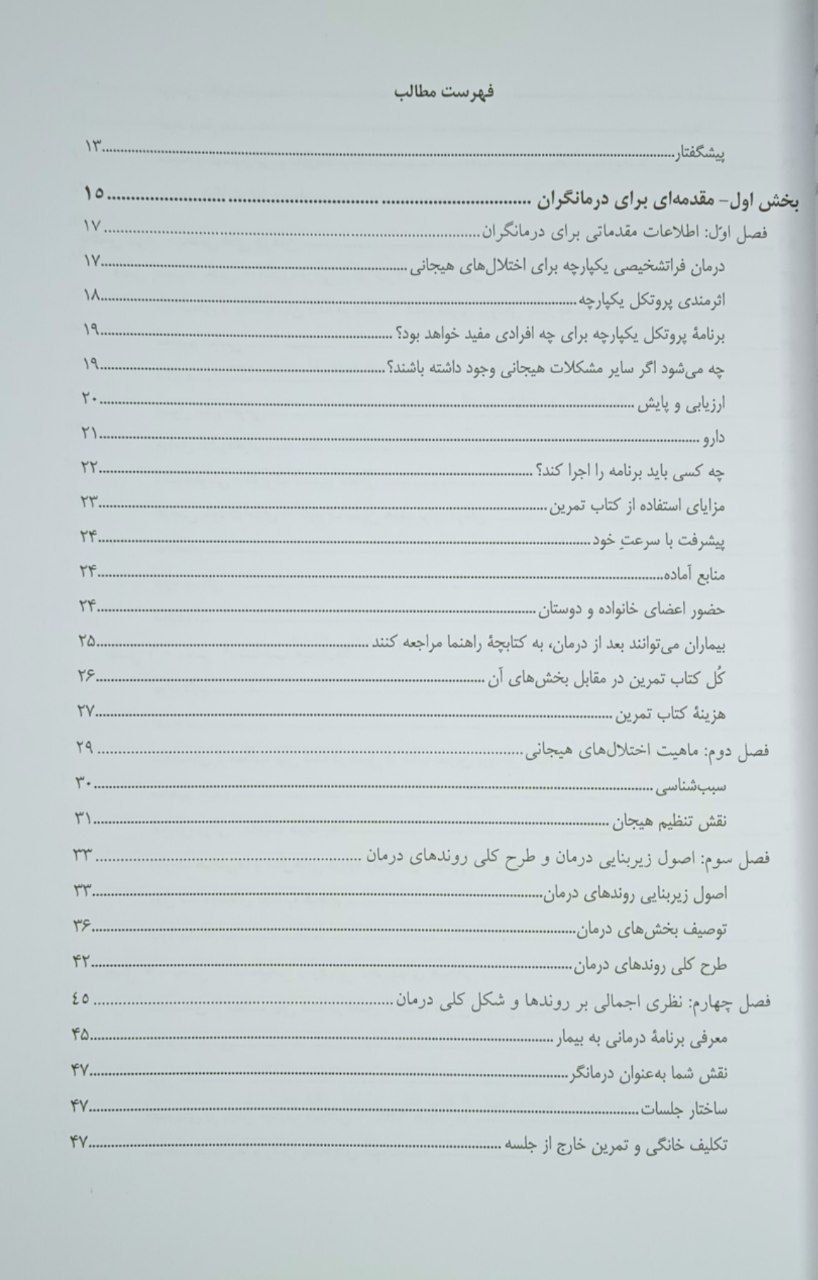 فهرست مطالب
پیشگفتار ۱۳
بخش اول- مقدمه‌ای برای درمانگران ۱۵
فصل اوّل: اطلاعات مقدماتی برای درمانگران ۱۷
درمان فراتشخیصی یکپارچه برای اختلال‌های هیجانی ۱۷
اثرمندی پروتکل یکپارچه ۱۸
برنامهٔ پروتکل یکپارچه برای چه افرادی مفید خواهد بود؟ ۱۹
چه می‌شود اگر سایر مشکلات هیجانی وجود داشته باشند؟ ۱۹
ارزیابی و پایش ۲۰
دارو ۲۱
چه کسی باید برنامه را اجرا کند؟ ۲۲
مزایای استفاده از کتاب تمرین ۲۳
پیشرفت با سرعتِ خود ۲۴
منابع آماده ۲۴
حضور اعضای خانواده و دوستان ۲۴
بیماران می‌توانند بعد از درمان، به کتابچهٔ راهنما مراجعه کنند ۲۵
کُل کتاب تمرین در مقابل بخش‌های آن ۲۶
هزینهٔ کتاب تمرین ۲۷
فصل دوم: ماهیت اختلال‌های هیجانی ۲۹
سبب‌شناسی ۳۰
نقش تنظیم هیجان ۳۱
فصل سوم: اصول زیربنایی درمان و طرح کلی روندهای درمان ۳۳
اصول زیربنایی روندهای درمان ۳۳
توصیف بخش‌های درمان ۳۶
طرح کلی روندهای درمان ۴۲
فصل چهارم: نظری اجمالی بر روندها و شکل کلی درمان ٤٥
معرفی برنامهٔ درمانی به بیمار ۴۵
نقش شما به‌عنوان درمانگر ۴۷
ساختار جلسات ۴۷
تکلیف خانگی و تمرین خارج از جلسه ۴۷